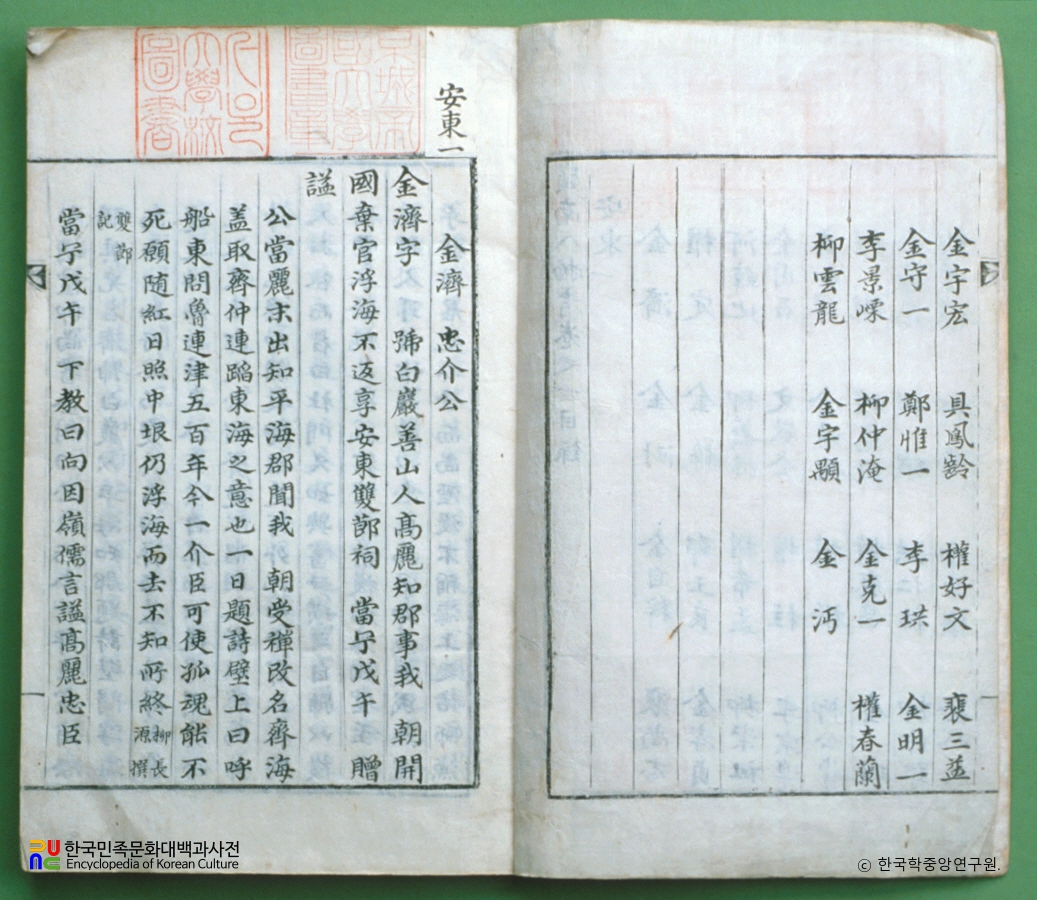 金宇宏 具鳳齡 權好文 裵三益
金守一 鄭惟一 李珙 金明一
李景㠍 柳仲淹 金克一 權春蘭
柳雲龍 金宇顒 金沔
安東一
金濟 忠介公
金濟字 號白巖善山人高麗知郡事我 朝開
國棄官浮海不返享安東雙節祠 當宁戊午 贈
諡
公當麗末出知平海郡聞我 朝受禪改名齊海
盖取齊仲連蹈東海之意也一日題詩壁上曰呼
船東問魯連津五百年今一介臣可使孤魂能不
死願随紅日照中垠仍浮海而去不知所終 柳長源撰
雙節記
當宁戊午 下教曰向因嶺儒言諡高麗忠臣
京城帝國大學圖書章
서울大學校圖書
한국민족문화대백과사전
Encyclopedia of Korean Culture
ⓒ 한국학중앙연구원.